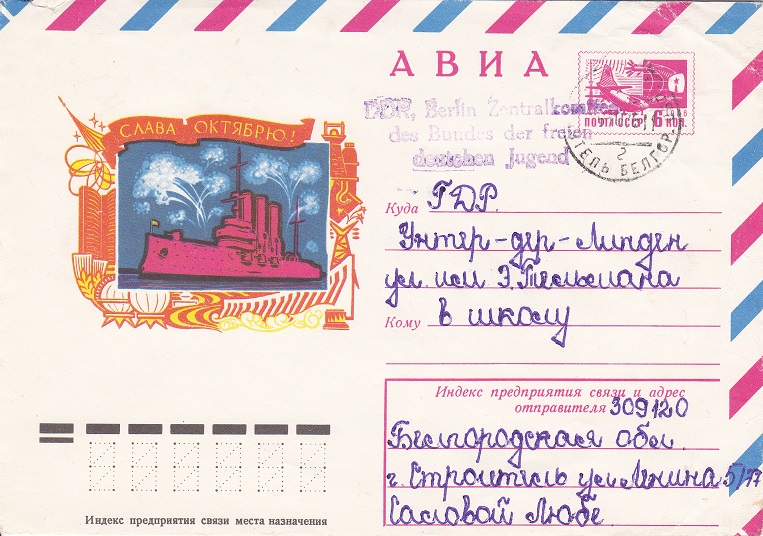 СЛАВА ОКТЯБРЮ!
АВИА
ПОЧТА СССР 6 КОП.
DDR, Berlin Zentralkomitee
des Bundes der freien
deutschen Jugend
ТЕЛЬ БЕЛГОР
2
Куда ГДР.
Унтер-дер-Линден
ул. им Э. Тельмана
Кому в школу
Индекс предприятия связи и адрес
отправителя 309120
Белгородская обл.
г. Строитель ул Ленина 5/77
Сасловой Любе
Индекс предприятия связи места назначения